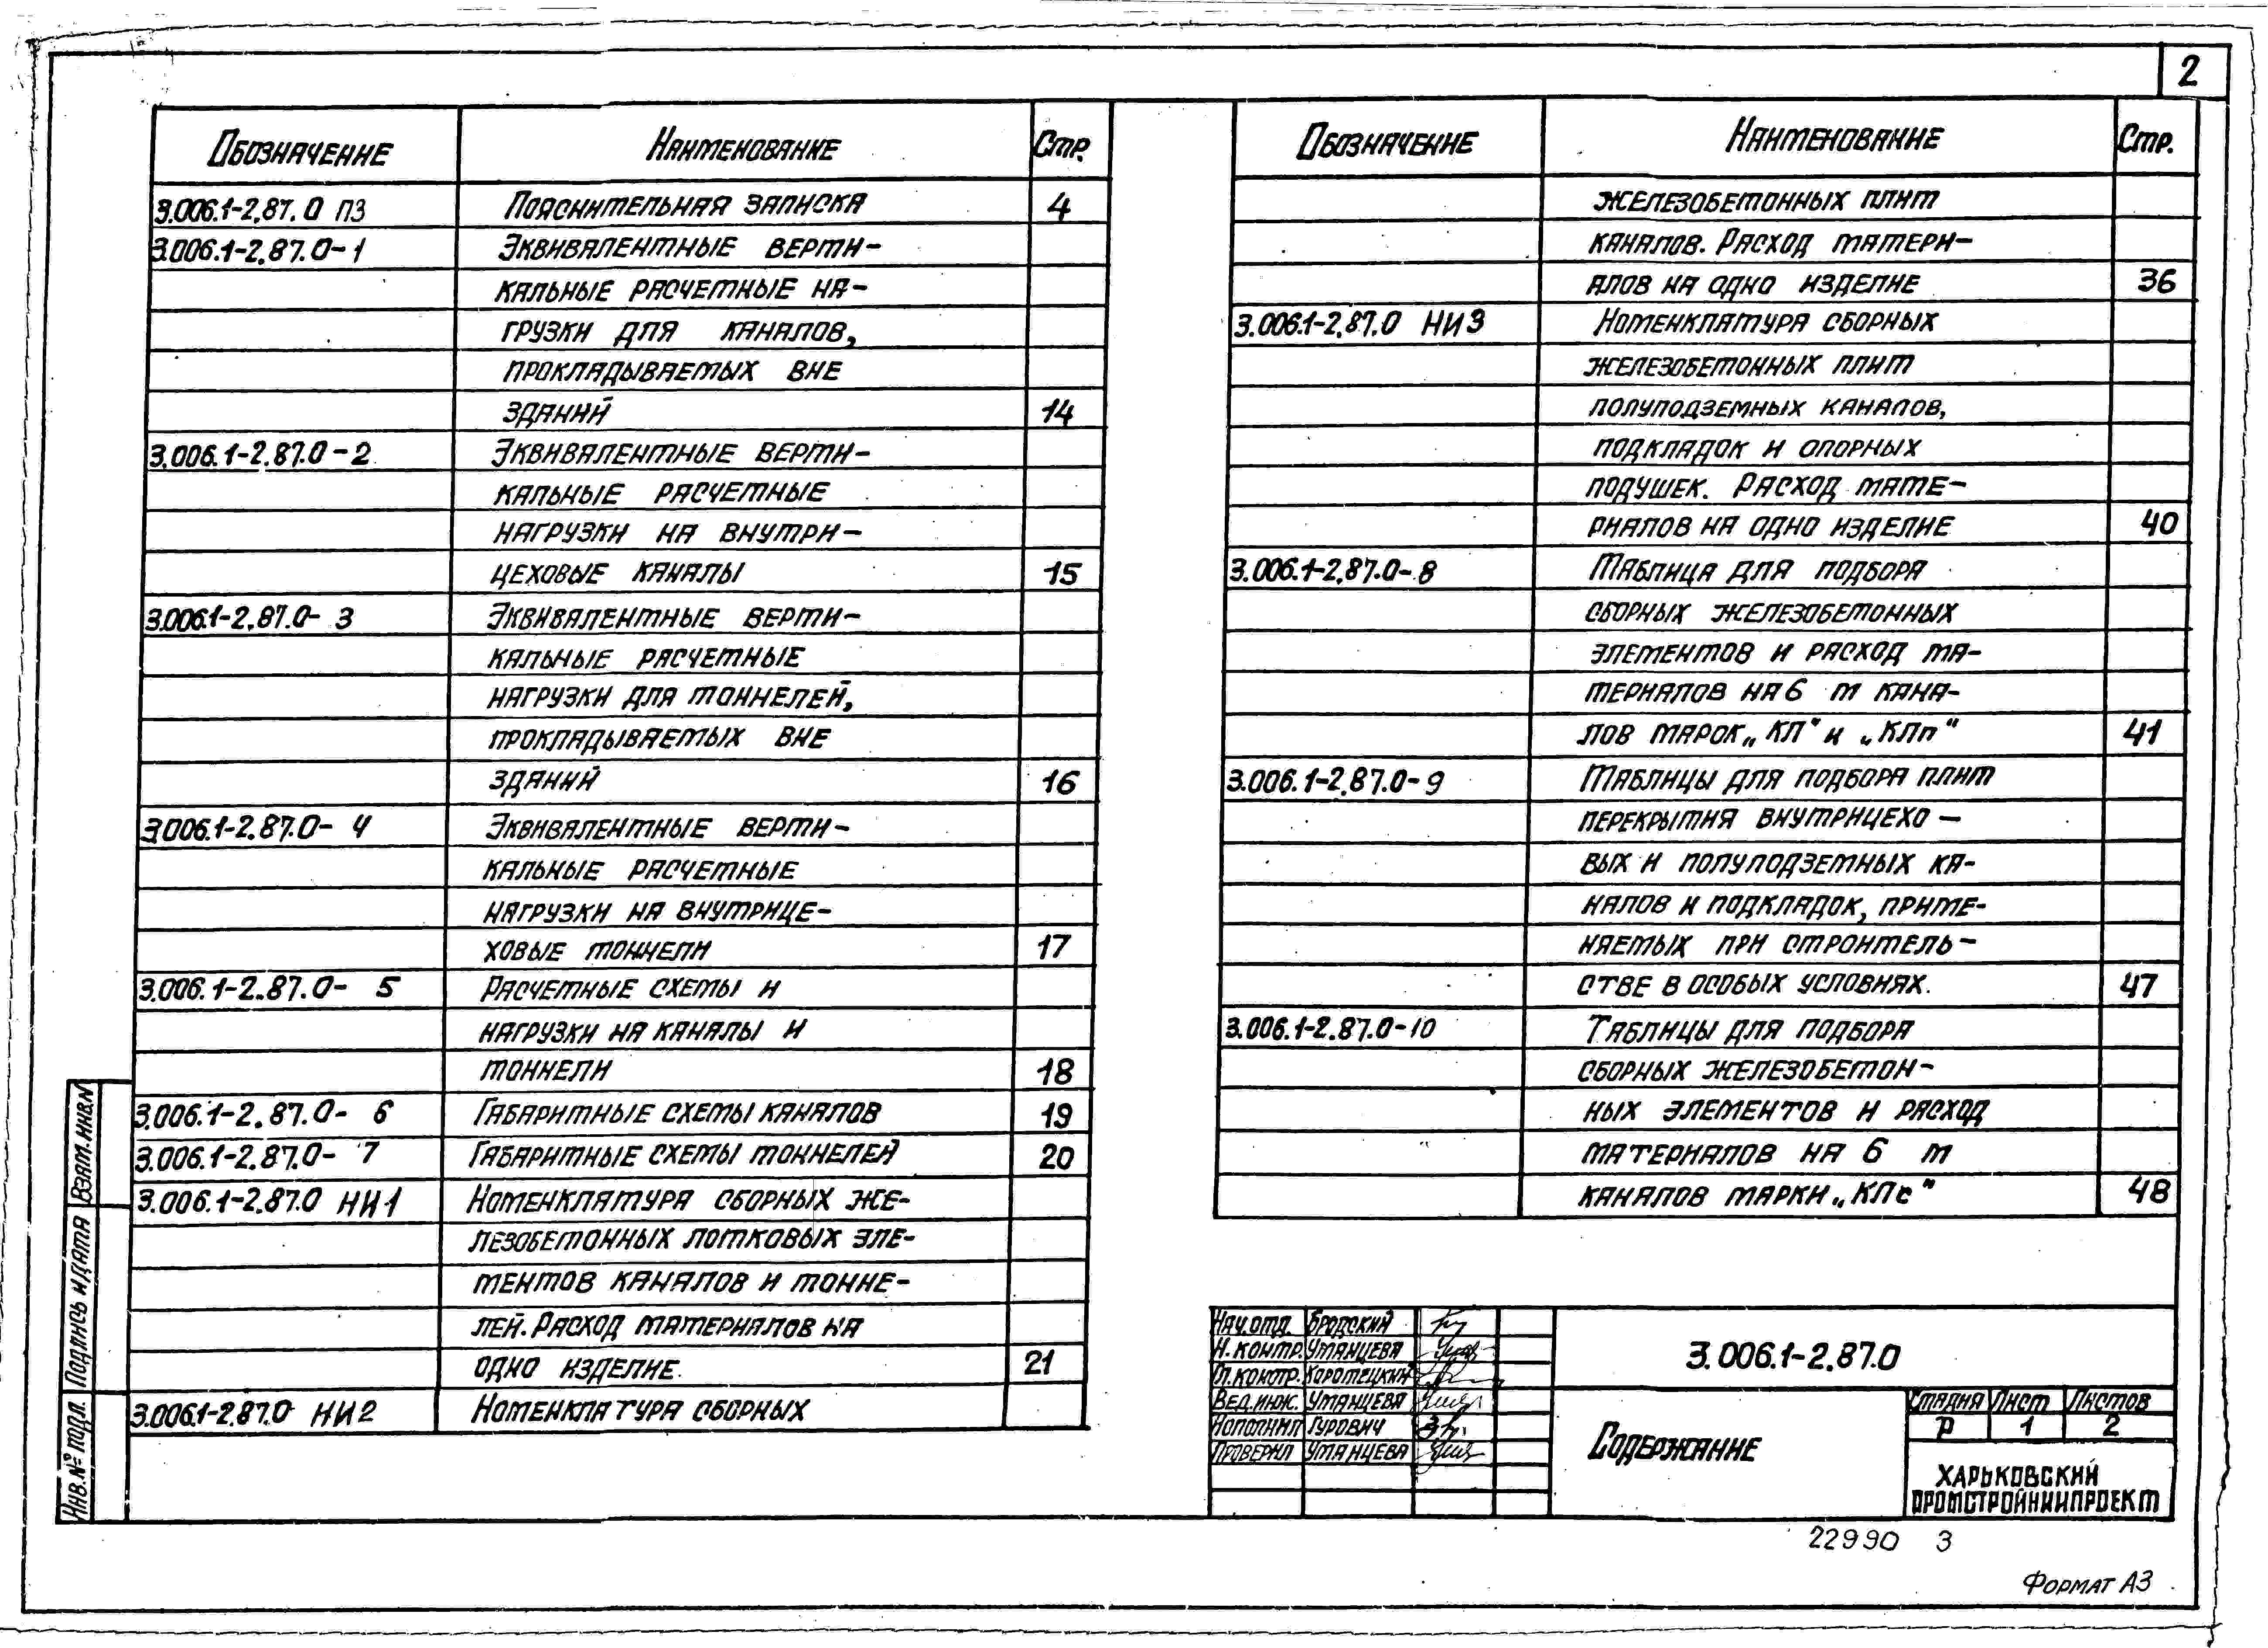 2
Обозначение Наименование Стр.
3.006.1-2.87.0 ПЗ Пояснительная записка 4
3.006.1-2.87.0-1 Эквивалентные верти-
кальные расчетные на-
грузки для каналов,
прокладываемых вне
зданий 14
3.006.1-2.87.0-2 Эквивалентные верти-
кальные расчетные
нагрузки на внутри-
цеховые каналы 15
3.006.1-2.87.0-3 Эквивалентные верти-
кальные расчетные
нагрузки для тоннелей,
прокладываемых вне
зданий 16
3.006.1-2.87.0-4 Эквивалентные верти-
кальные расчетные
нагрузки на внутрице-
ховые тоннели 17
3.006.1-2.87.0-5 Расчетные схемы и
нагрузки на каналы и
тоннели 18
3.006.1-2.87.0-6 Габаритные схемы каналов 19
3.006.1-2.87.0-7 Габаритные схемы тоннелей 20
3.006.1-2.87.0 НИ1 Номенклатура сборных же-
лезобетонных лотковых эле-
ментов каналов и тонне-
лей. Расход материалов на
одно изделие. 21
3.006.1-2.87.0 НИ2 Номенклатура сборных
Обозначение Наименование Стр.
железобетонных плит
каналов. Расход матери-
алов на одно изделие 36
3.006.1-2.87.0 НИ3 Номенклатура сборных
железобетонных плит
полуподземных каналов,
подкладок и опорных
подушек. Расход мате-
риалов на одно изделие 40
3.006.1-2.87.0-8 Таблица для подбора
сборных железобетонных
элементов и расход ма-
териалов на 6 м кана-
лов марок „КЛ" и „КЛп" 41
3.006.1-2.87.0-9 Таблицы для подбора плит
перекрытия внутрицехо-
вых и полуподземных ка-
налов и подкладок, приме-
няемых при строитель-
стве в особых условиях. 47
3.006.1-2.87.0-10 Таблицы для подбора
сборных железобетон-
ных элементов и расход
материалов на 6 м
каналов марки „КЛс" 48
Взам.инв.N
Подпись и дата
Инв.№ подл.
Нач.отд. Бродский
Н.контр. Уманцева
Гл.констр. Коротецкий
Вед.инж. Уманцева
Исполнил Гурович
Проверил Уманцева
3.006.1-2.87.0
Содержание
Стадия Лист Листов
Р 1 2
Харьковский
Промстройниипроект
22990 3
Формат А3